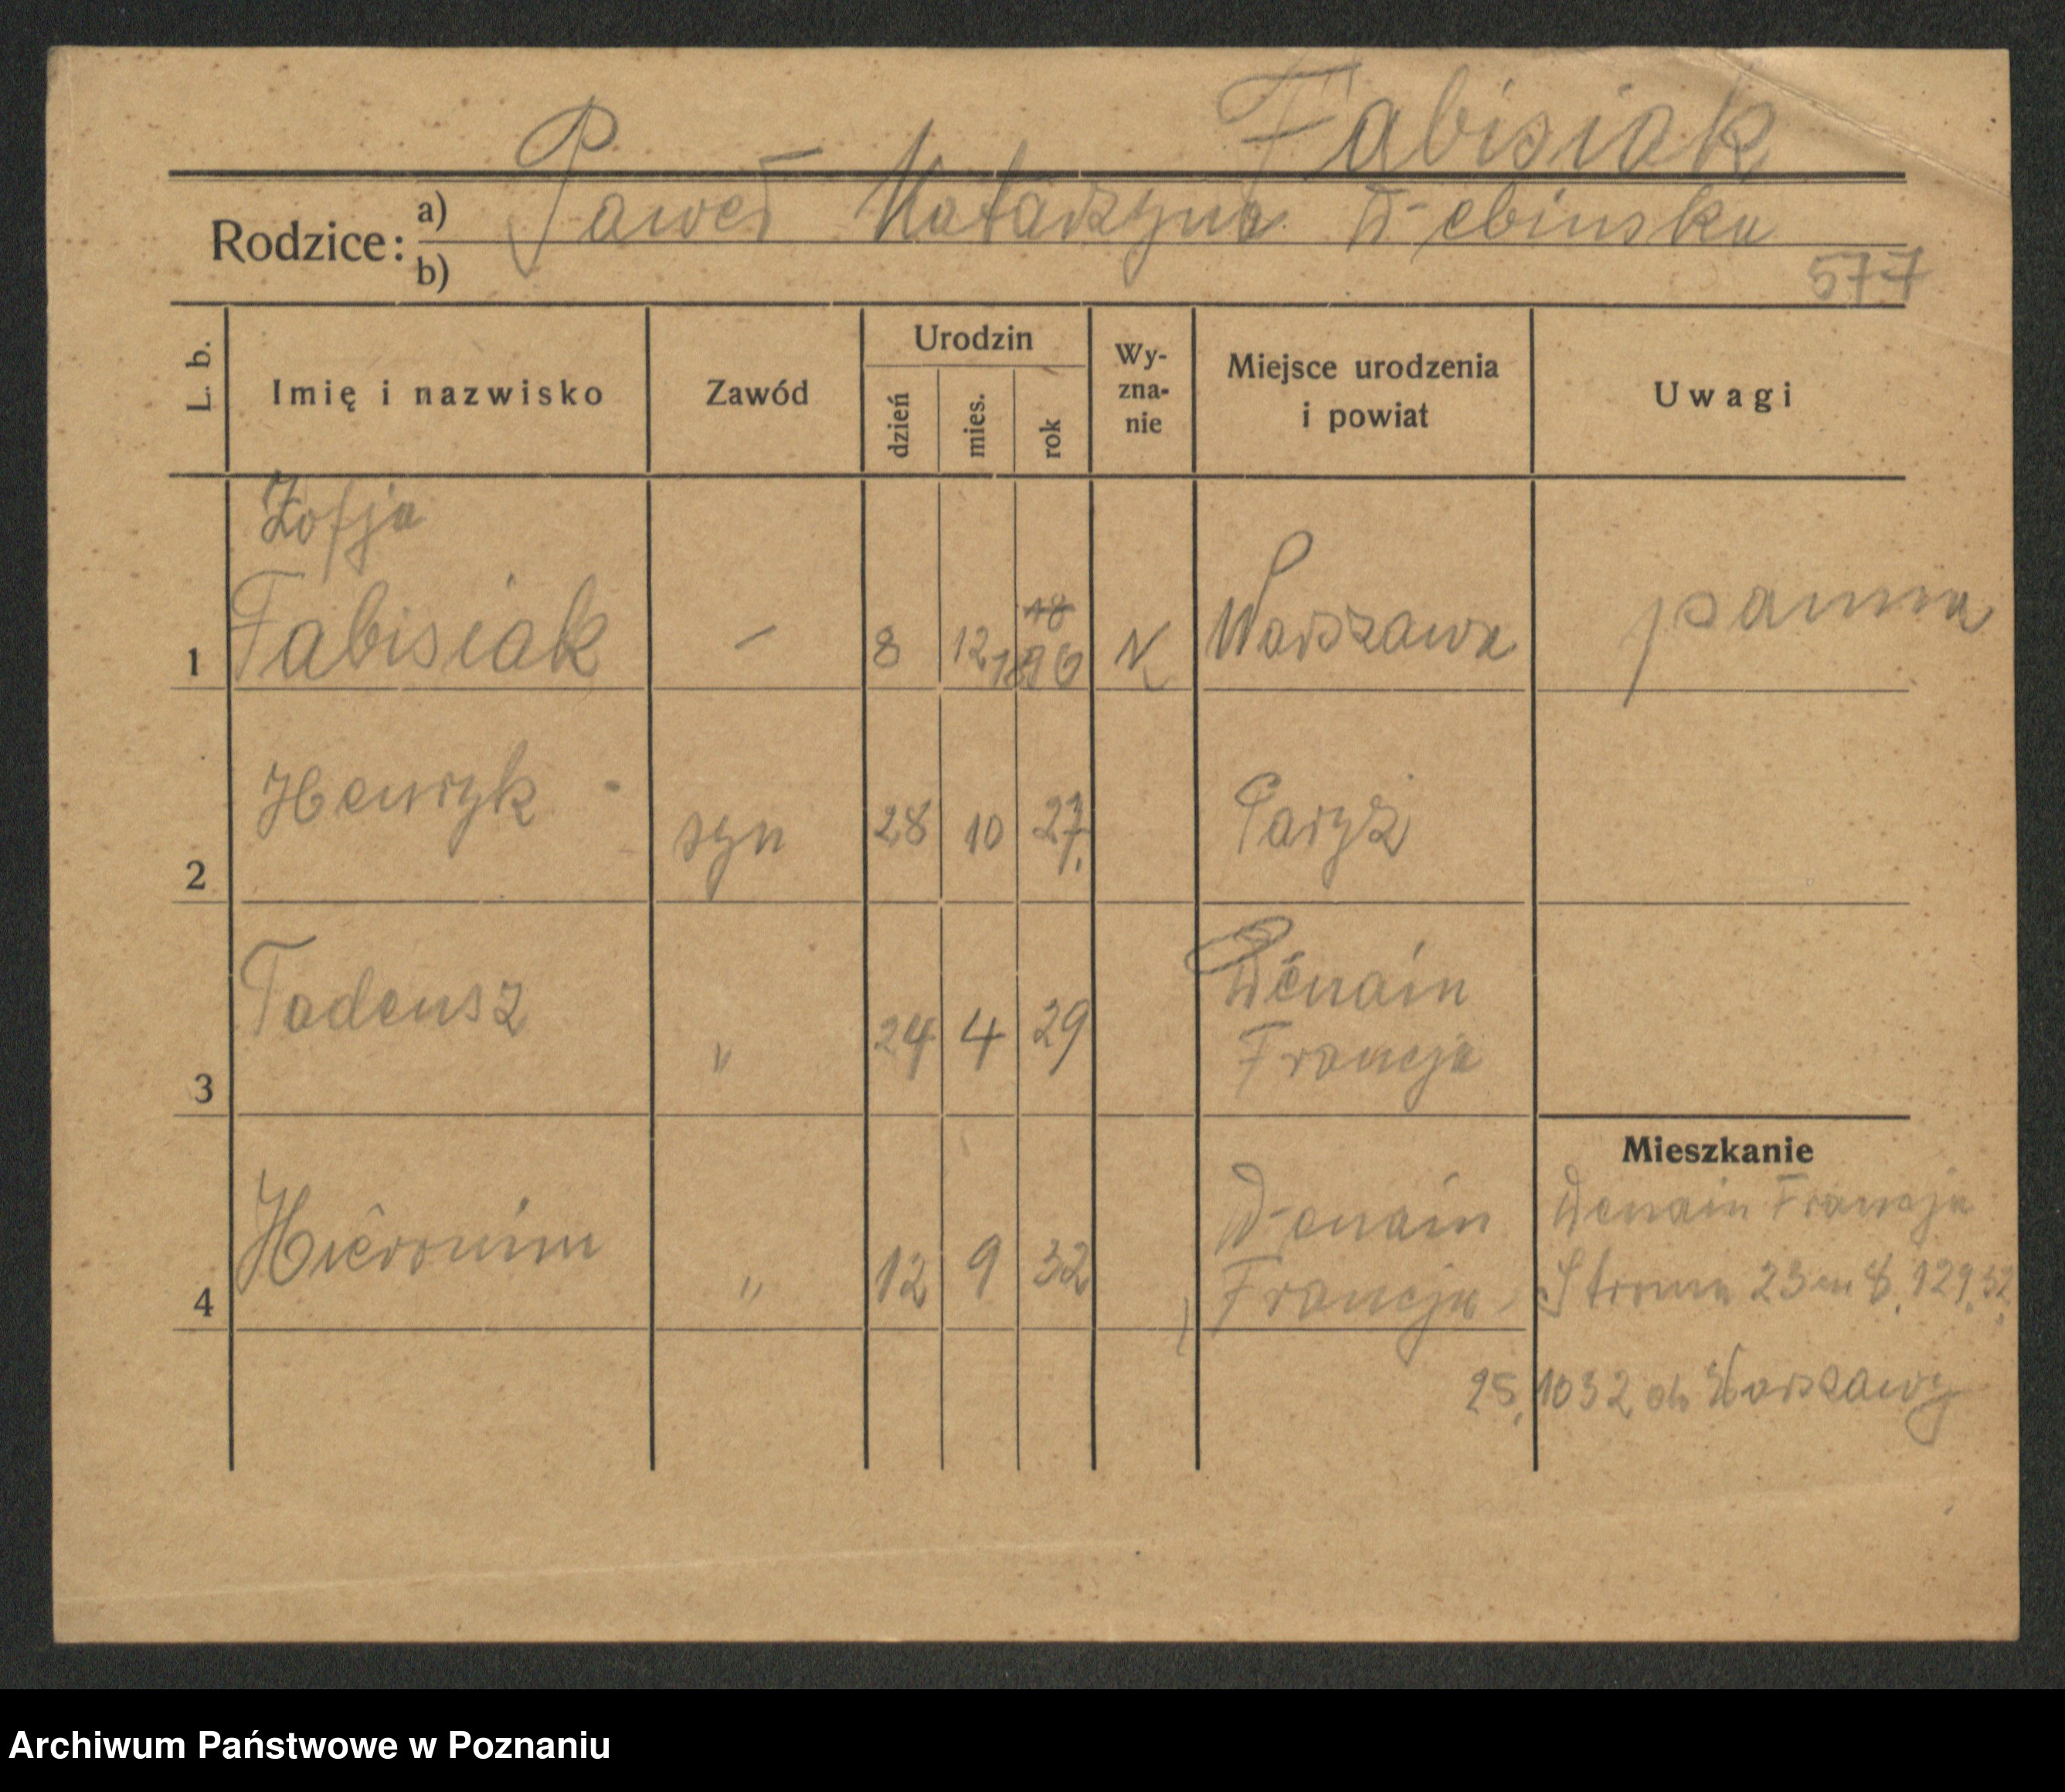 Fabisiak
Rodzice: a) Paweł Katarzyna Debinska
b)
577
L. b. Imię i nazwisko Zawód Urodzin dzień mies. rok Wy-zna-nie Miejsce urodzenia i powiat Uwagi
Zofja
1 Fabisiak – 8 12 1896 Warszawa panna
2 Henryk syn 28 10 27. Paryż
3 Tadeusz " 24 4 29 Denain
Francja
Mieszkanie
4 Hieronim " 12 9 32 Denain
Francja
Denain Francja
Stroma 23 m 8, 12.9.32.
25.1032 do Warszawy
Archiwum Państwowe w Poznaniu